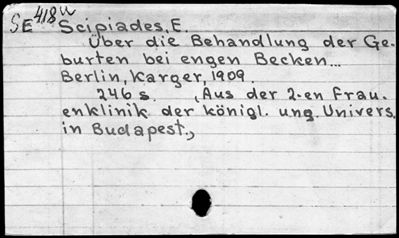 SE 418u Scipiades, E.
Über die Behandlung der Ge-
burten bei engen Becken...
Berlin, Karger, 1909.
246 s. „Aus der 2-en Frau-
enklinik der königl. ung. Univers.
in Budapest.„